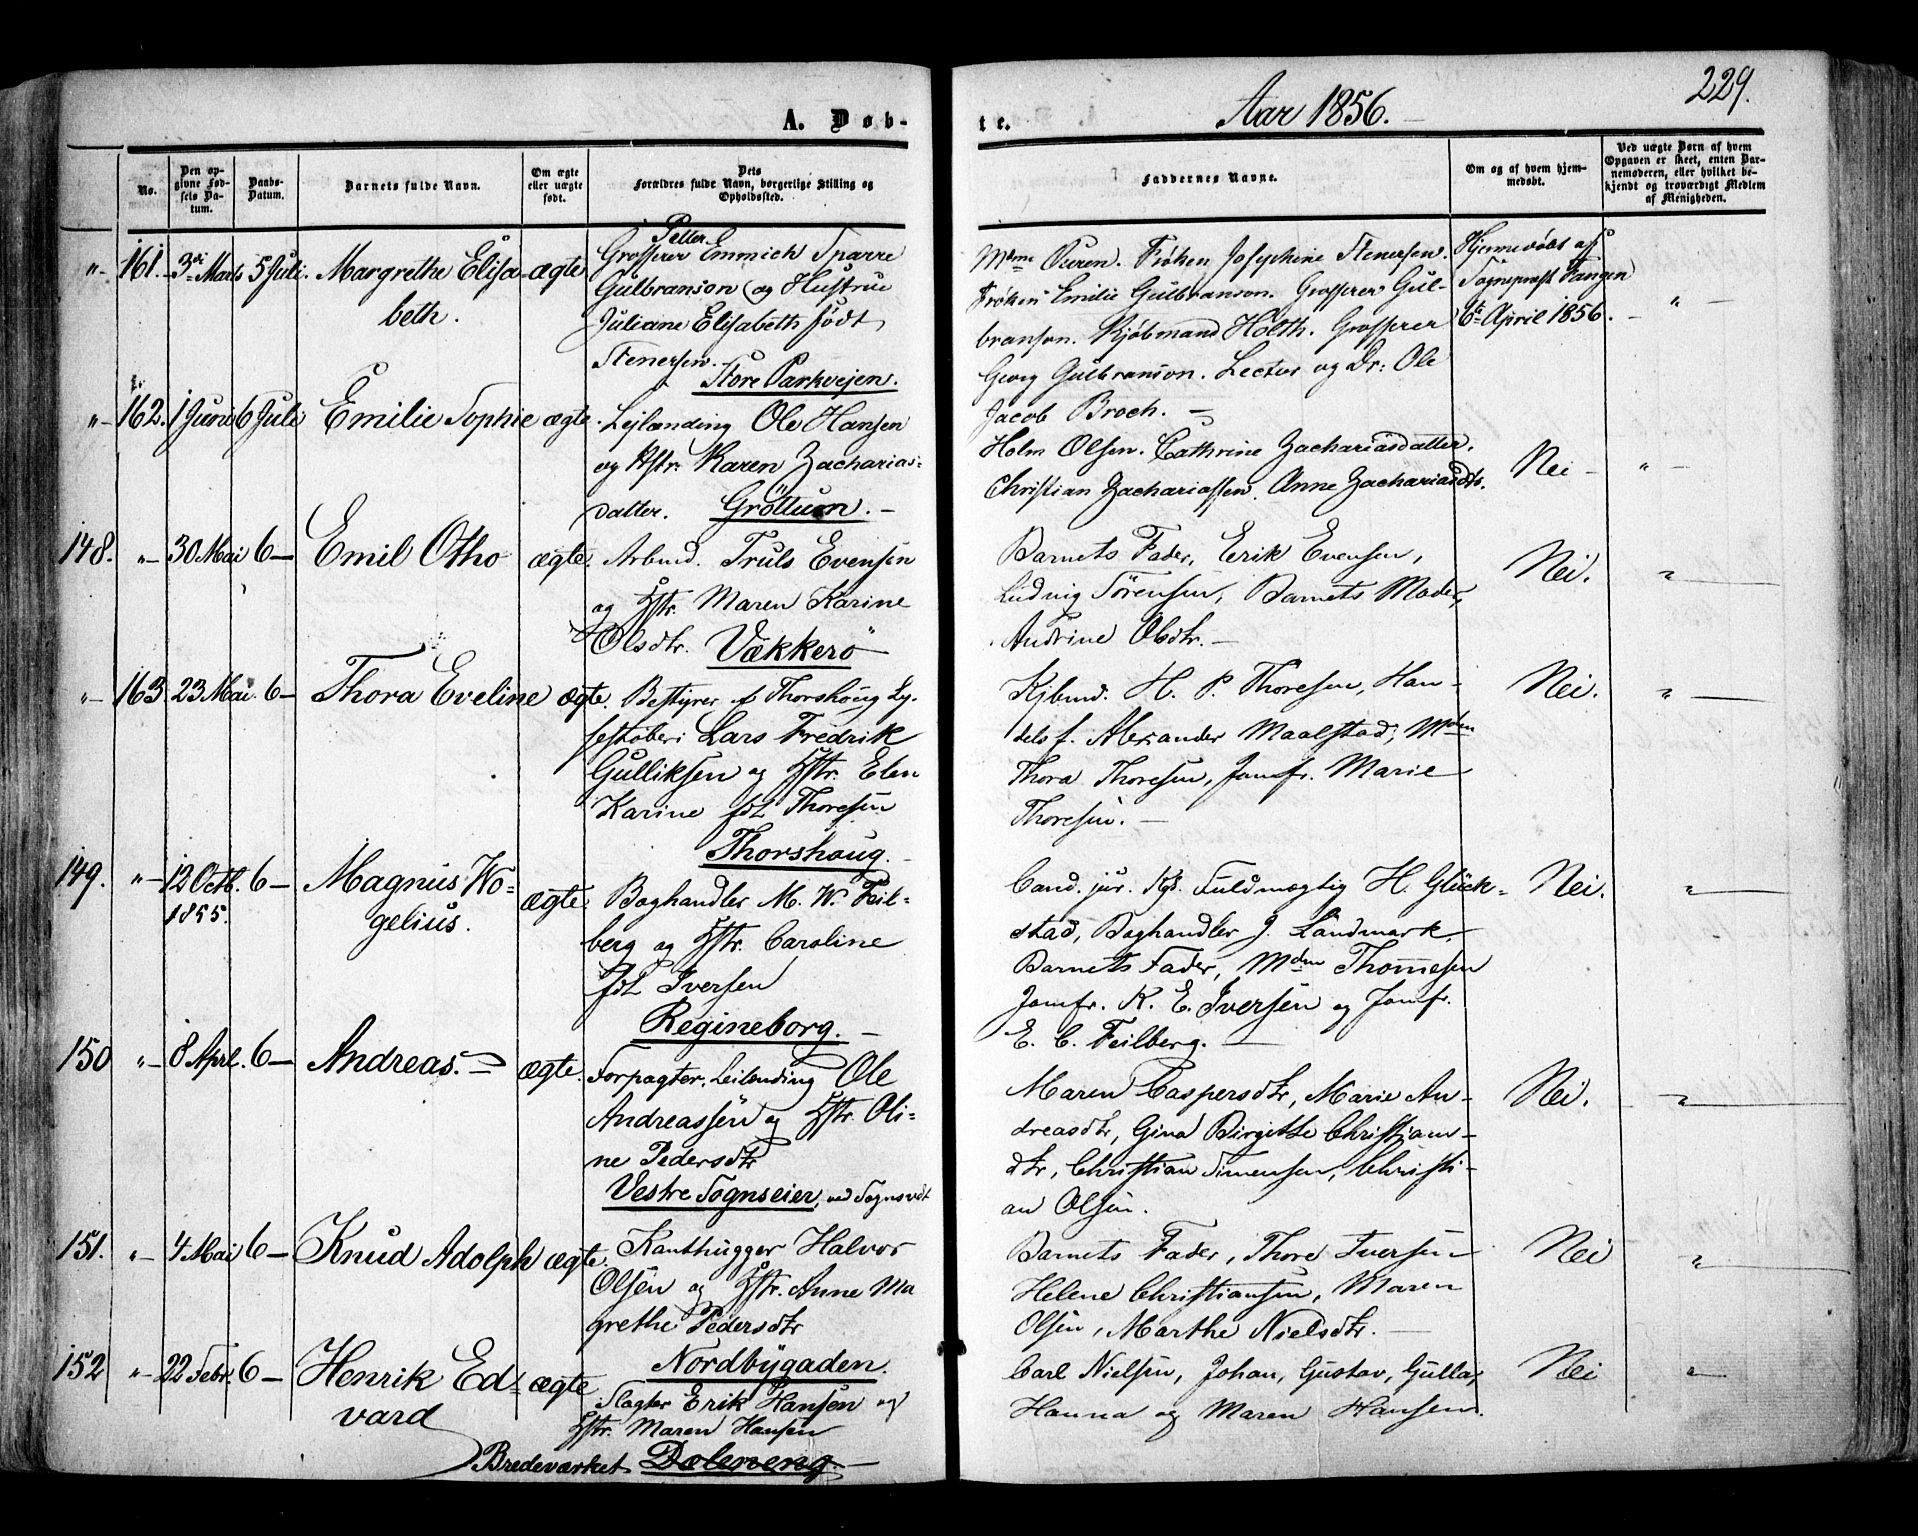 A. Døb-
te.
Aar 1856.
229.
No.
Den op-
givne Fød-
sels Da-
tum.
Daabs-
Datum.
Barnets fulde Navn.
Om ægte
eller uægte
født.
Dets
Forældres fulde Navn, borgerlige Stilling og
Opholdssted.
Faddernes Navne.
Om og af hvem hjem-
medøbt.
Ved uægte Børn af hvem
Opgaven er skeet, enten Bar-
nemoderen, eller hvilket be-
kjendt og troværdigt Medlem
af Menigheden.
"- 161. 3die Marts 5 Juli. Margrethe Elisa-
beth.
ægte
Petter
Grosserer Emmich Sparre
Gulbranson (og Hustrue
Juliane Elisabeth født
Stenersen.
Store Parkvejen.
Mdme Puren. Frøken Josephine Stenersen.
Frøken Emilie Gulbranson. Grosserer Gul-
branson. Kjøbmand Holth. Grosserer
Georg Gulbranson. Lector og Dr: Ole
Jacob Broch.
Hjemmedøbt af
Sognepræst Fangen
6te April 1856.
" -
"- 162. 1 Juni 6 Juli Emilie Sophie ægte.
Lejlænding Ole Hansen
og Hstr. Karen Zacharias-
datter. Gröttum. -
Holm Olsen. Cathrine Zachariasdatter.
Christian Zachariassen. Anne Zachariasdtr.
Nei - " -
148. "- 30 Mai 6 - Emil Otho ægte.
Arbmd. Truls Evensen
og Hstr. Maren Karine
Olsdtr. Vækkerö
Barnets Fader, Erik Evensen,
Ludvig Sörensen, Barnets Moder,
Andrine Olsdtr. -
Nei. "
"- 163 23 Mai. 6 - Thora Eveline ægte.
Bestyrer af Thorshoug Ly-
sestøberi Lars Fredrik
Gulliksen og Hstr. Elen
Karine fdt Thoresen
Thorshoug. -
Kjbmd. H. P. Thoresen, Han-
dels f. Alexander Maalstad, Mdm
Thora Thoresen, Jomfr. Marie
Thoresen. -
Nei. "
149. "- 12 Octb. 6 - Magnus Wo-
1855.
gelius.
ægte.
Boghandler M. W. Feil-
berg og Hstr. Caroline
fdt Iversen
Regineborg. -
Cand. jur. Kgl. Fuldmægtig H. Glück-
stad, Boghandler J. Landmark,
Barnets Fader, Mdm Thomesen
Jomfr. K. E. Iversen og Jomfr.
E. C. Feilberg. -
Nei. "
150 "- 8 Aprl. 6 - Andreas. ægte.
Forpagter, Leilending Ole
Andreassen og Hstr. Oli-
ne Pedersdtr
Vestre Sogns eier, ved Sognsvdt
Maren Caspersdtr, Marie An-
dreasdtr, Gina Birgitte Christians-
dtr, Christian Simensen, Christi-
an Olsen.
Nei. "
151. "- 4 Mai 6 - Knud Adolph ægte.
Kanthugger Halvor
Olsen og Hstr. Anne Ma
grethe Pedersdtr
Nordbygaden.
Barnets Fader, Thore Iversen
Helene Christiansen, Maren
Olsen, Marthe Nielsdtr. -
Nei "
152 "- 22 Febr. 6 - Henrik Ed-
vard
ægte
Slagter Erik Hansen og
Hstr. Maren Hansen
Bredeværket Dæleneng -
Carl Nielsen, Johan, Gustav, Gulla,
Hanna og Maren Hansen.
Nei "